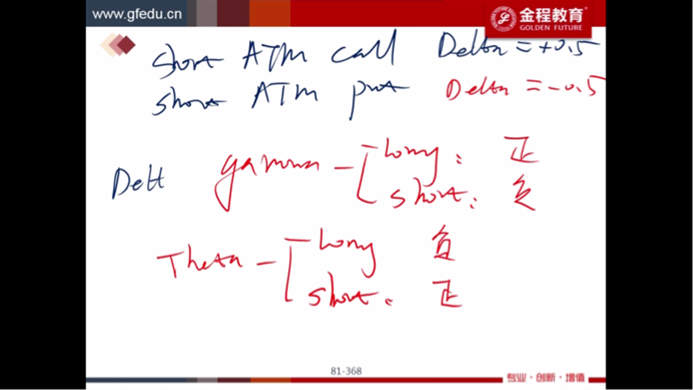 www.gfedu.cn
金程教育
GOLDEN FUTURE
short ATM call Delta = +0.5
short ATM put Delta = -0.5
Delt gamma - long: 正
short: 负
Theta - long 负
short: 正
81-368
专业·创新·增值